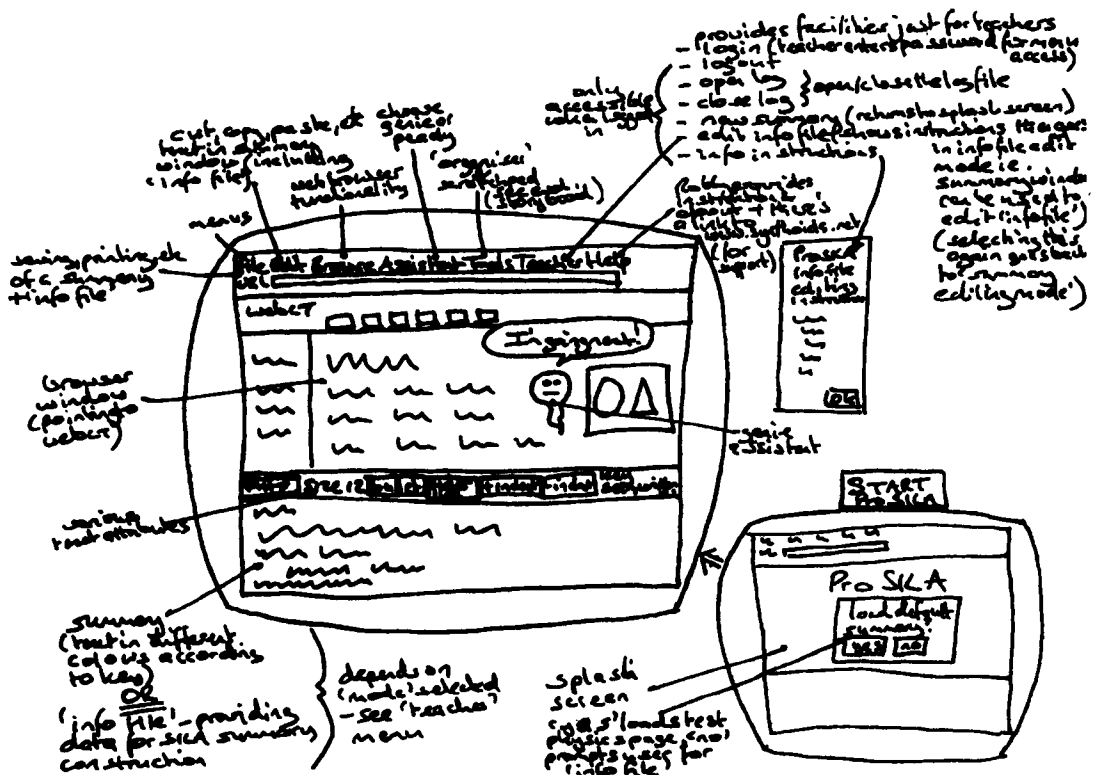 - provides facilities just for teachers
- login (teacher enters password for menu access)
- logout
- open log
- close log
} open/close the log file
- new summary (returns to splash screen)
- edit info file
- info instructions
only
accessible
when logged
in
in info file edit
mode i.e.
summary window
can be used to
edit 'info file')
(selecting this
again goes back
to 'summary
editing mode')
cut, copy, paste, etc
text in summary
window (including
'info file')
web browser
functionality
choose
genie or
peedy
'organiser'
scratchpad
menus
saving, printing, etc
of a summary
+ info file
provides
instructions
about
a link to
(for
support)
File Edit Browse Assistant Tools Teacher Help
url
WebCT
I'm going next!
browser
window
(pointing to
WebCT)
genie
assistant
size 12
various
text attributes
ProSKA
info file
editing
instructions
OK
summary
(text in different
colours according
to key)
OR
'info file' - providing
data for skca summary
construction
depends on
'mode' selected
- see 'teacher'
menu
START
ProSKA
ProSKA
load default
summary?
yes no
splash
screen
'yes' loads test
physics page, 'no'
prompts user for
'info file'